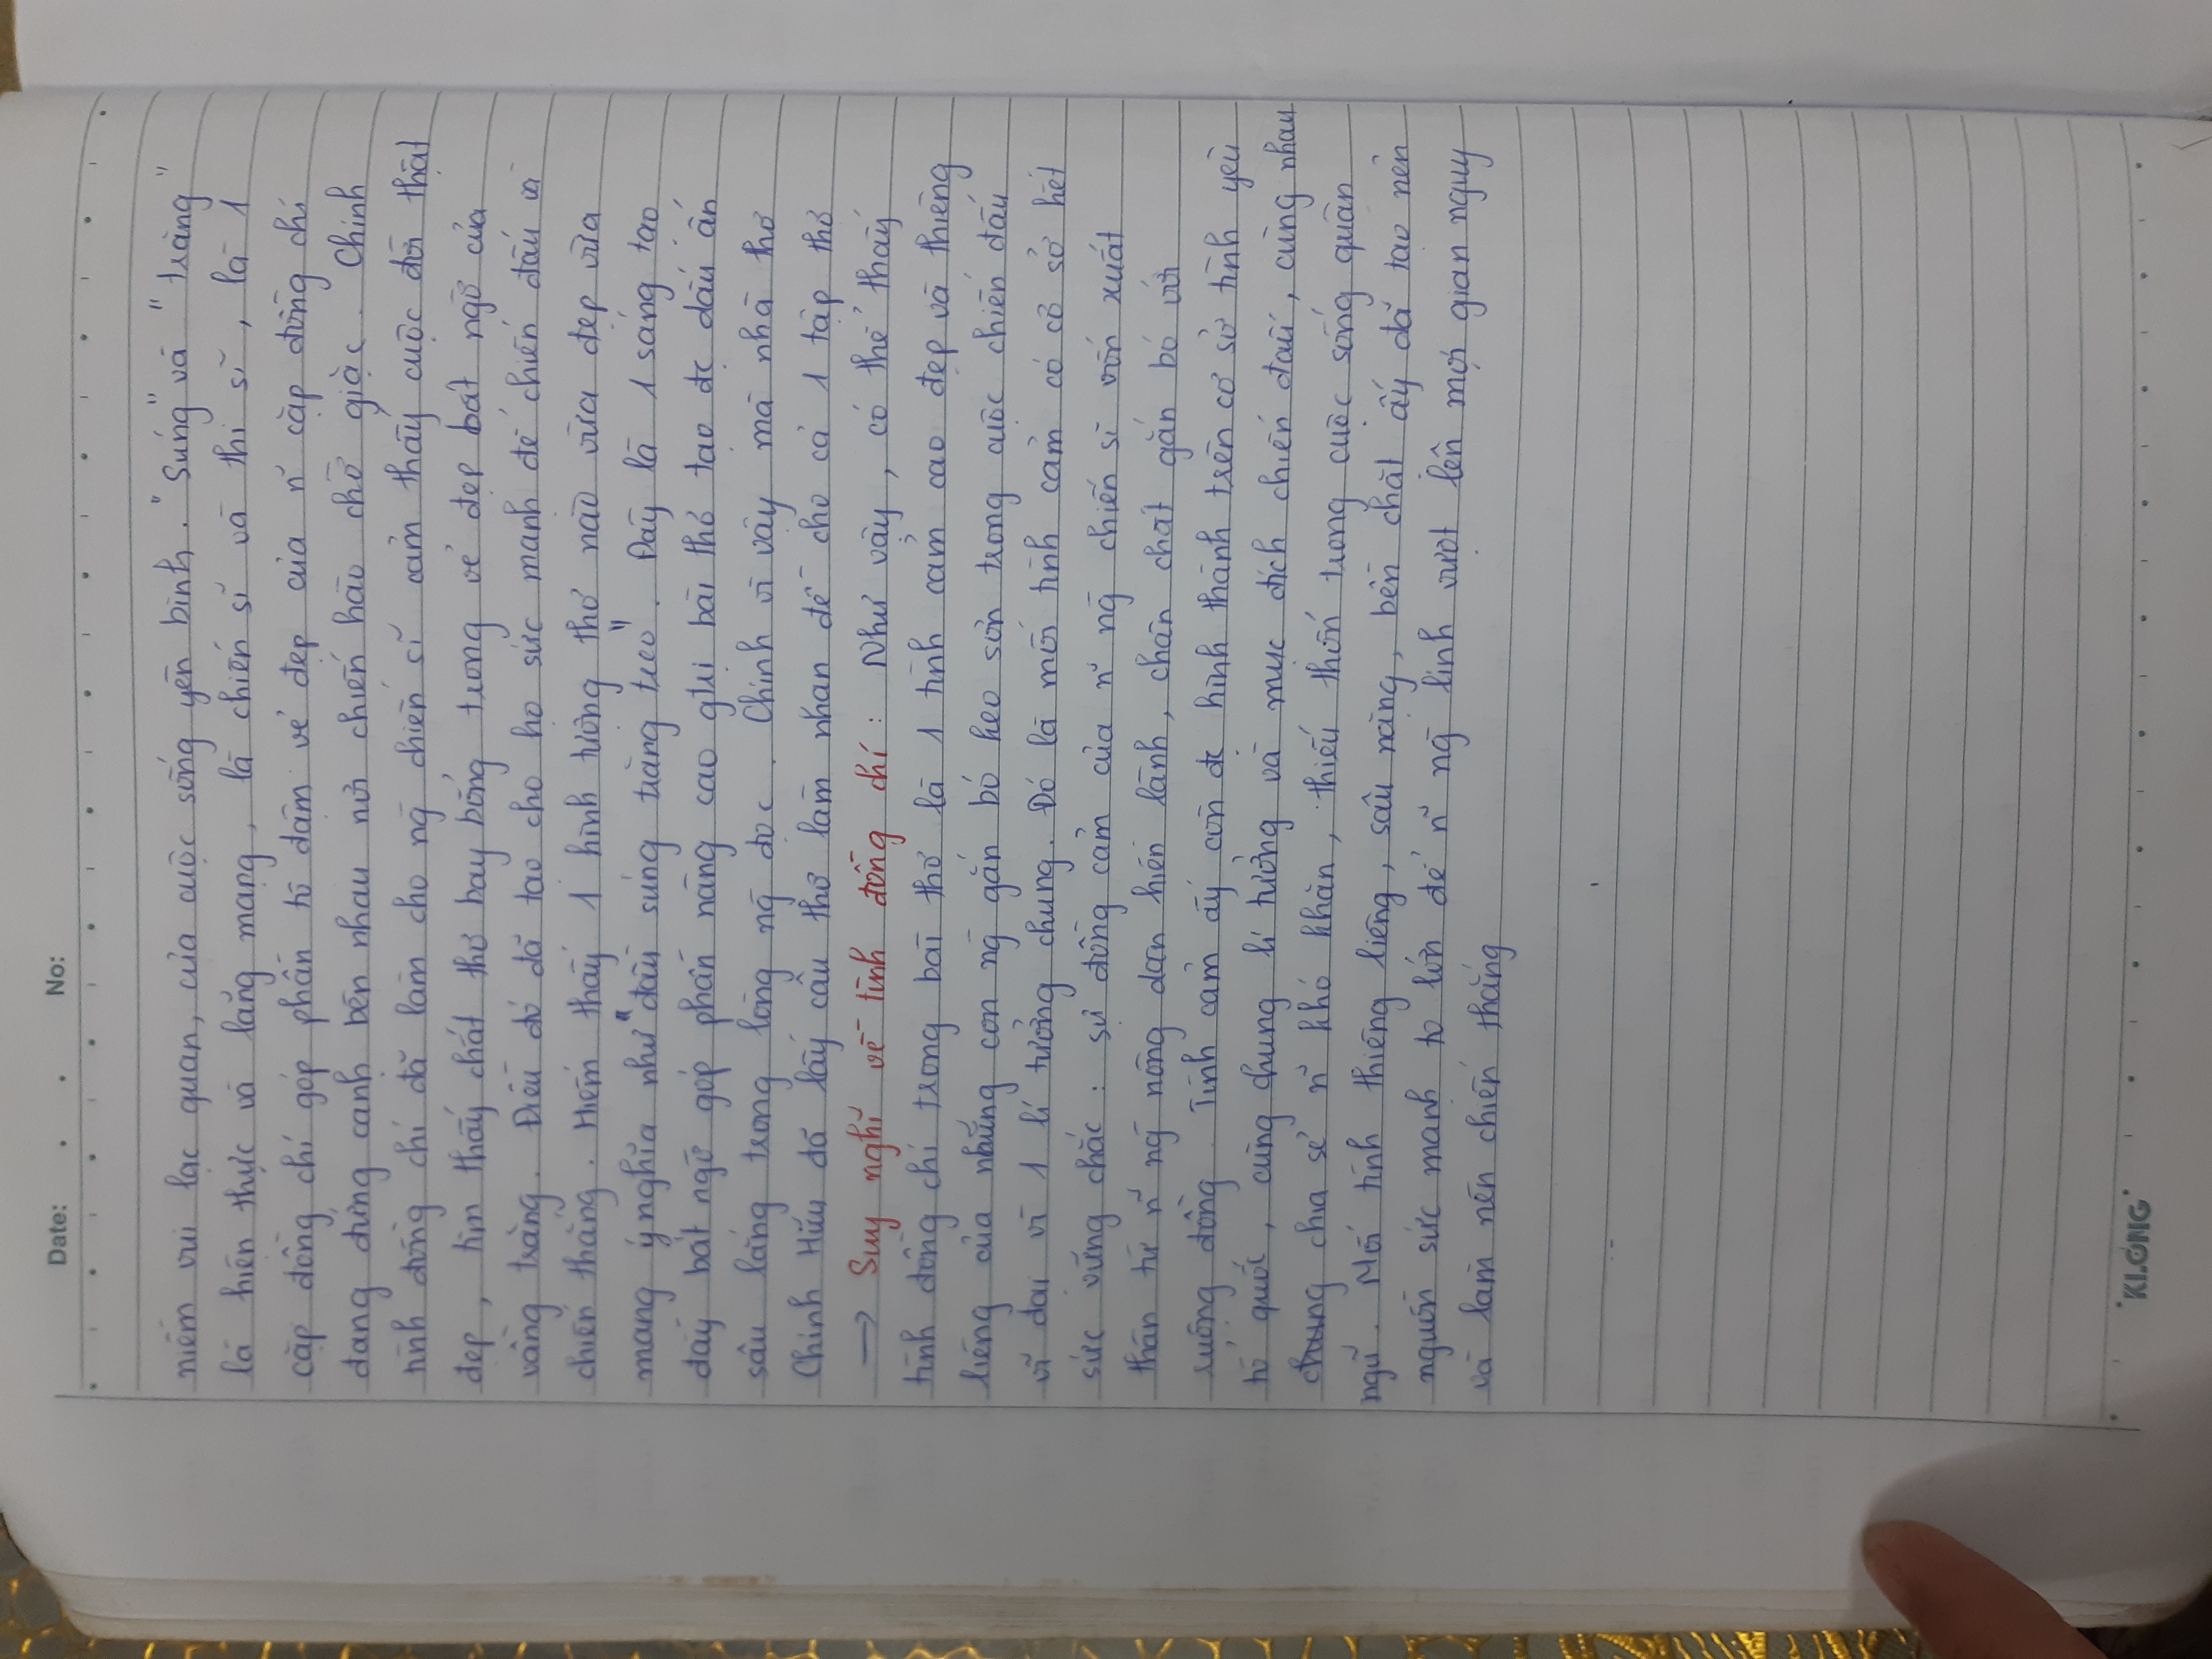 Date: . . No:
niềm vui lạc quan, của cuộc sống yên bình. "Súng" và "trăng"
là hiện thực và lãng mạng, là chiến sĩ và thi sĩ, là 1
cặp đồng chí góp phần tô đậm vẻ đẹp của n~ cặp đồng chí
đang đứng cạnh bên nhau nơi chiến hào chờ giặc. Chính
tình đồng chí đã làm cho ng~ chiến sĩ cảm thấy cuộc đời thật
đẹp, tìm thấy chất thơ bay bổng trong vẻ đẹp bất ngờ của
vầng trăng. Điều đó đã tạo cho họ sức mạnh để chiến đấu và
chiến thắng. Hiếm thấy 1 hình tượng thơ nào vừa đẹp vừa
mang ý nghĩa như "đầu súng trăng treo". Đây là 1 sáng tạo
đầy bất ngờ góp phần nâng cao gtrị bài thơ tạo đc dấu ấn
sâu lắng trong lòng ng~ đọc. Chính vì vậy mà nhà thơ
Chính Hữu đã lấy câu thơ làm nhan đề cho cả 1 tập thơ
→ Suy nghĩ về tình đồng chí : Như vậy, có thể thấy
tình đồng chí trong bài thơ là 1 tình cảm cao đẹp và thiêng
liêng của những con ng~ gắn bó keo sơn trong cuộc chiến đấu
vĩ đại vì 1 lí tưởng chung. Đó là mối tình cảm có cơ sở hết
sức vững chắc : sự đồng cảm của n~ ng~ chiến sĩ vốn xuất
thân từ n~ ng~ nông dân hiền lành, chân chất gắn bó với
ruộng đồng. Tình cảm ấy còn đc hình thành trên cơ sở tình yêu
tổ quốc, cùng chung lí tưởng và mục đích chiến đấu, cùng nhau
chung chia sẻ n~ khó khăn, thiếu thốn trong cuộc sống quân
ngũ. Mối tình thiêng liêng, sâu nặng, bền chặt ấy đã tạo nên
nguồn sức mạnh to lớn để n~ ng~ lính vượt lên mọi gian nguy
và làm nên chiến thắng
KLONG